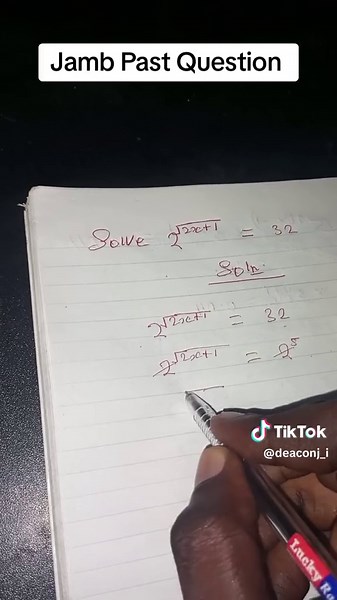 Jamb Past Question
Solve 2^√(2x+1) = 32
Soln.
2^√(2x+1) = 32
2^√(2x+1) = 2^5
TikTok
@deaconj_i